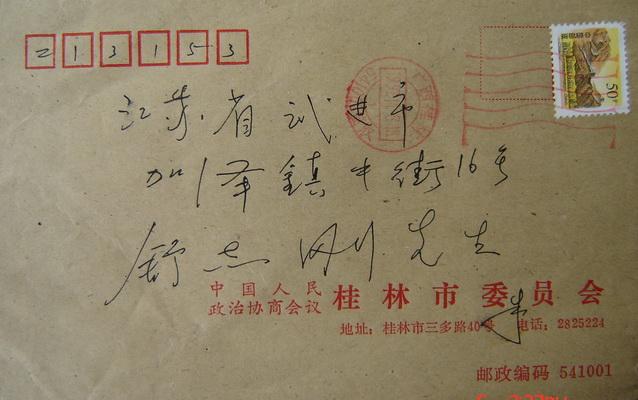 213153
江苏省武进市
加泽镇中街16号
舒志刚先生
中国人民
政治协商会议 桂林市委员会
地址：桂林市三多路40号 电话：2825224
朱
邮政编码 541001
50